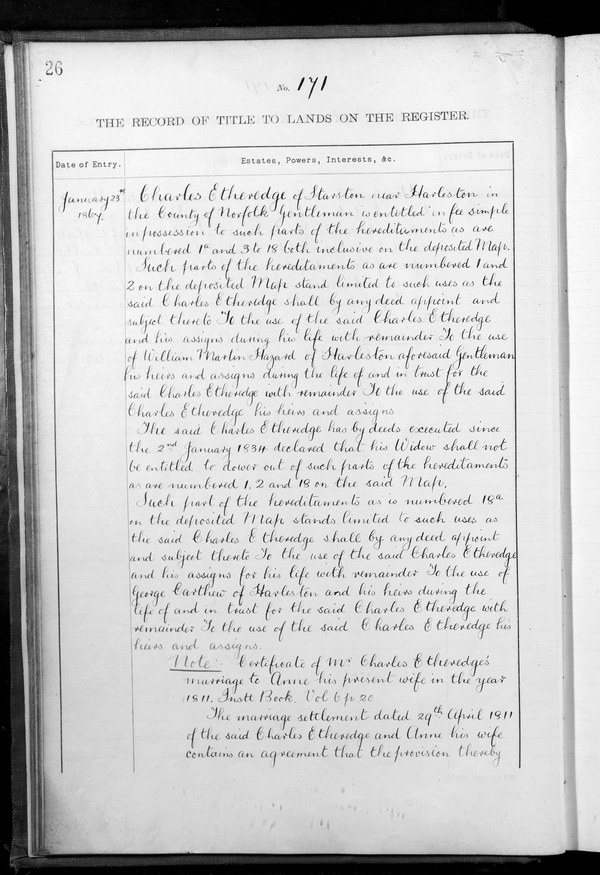 26
No. 171
THE RECORD OF TITLE TO LANDS ON THE REGISTER.
Date of Entry.
Estates, Powers, Interests, &c.
January 23rd
1867.
Charles Etheredge of Starston near Harleston in
the County of Norfolk Gentleman is entitled in fee simple
in possession to such parts of the hereditaments as are
numbered 1a and 3 to 18 both inclusive on the deposited Map.
Such parts of the hereditaments as are numbered 1 and
2 on the deposited Map stand limited to such uses as the
said Charles Etheredge shall by any deed appoint and
subject thereto To the use of the said Charles Etheredge
and his assigns during his life with remainder To the use
of William Martin Hazard of Harleston aforesaid Gentleman
his heirs and assigns during the life of and in trust for the
said Charles Etheredge with remainder To the use of the said
Charles Etheredge his heirs and assigns
The said Charles Etheredge has by deeds executed since
the 2nd January 1834 declared that his Widow shall not
be entitled to dower out of such parts of the hereditaments
as are numbered 1, 2 and 18 on the said Map.
Such part of the hereditaments as is numbered 18a
on the deposited Map stands limited to such uses as
the said Charles Etheredge shall by any deed appoint
and subject thereto To the use of the said Charles Etheredge
and his assigns for his life with remainder To the use of
George Carthew of Harleston and his heirs during the
life of and in trust for the said Charles Etheredge with
remainder To the use of the said Charles Etheredge his
heirs and assigns.
Note:- Certificate of Mr Charles Etheredge's
marriage to Anne his present wife in the year
1811. Instt Book. Vol 6 p 20
The marriage settlement dated 29th April 1811
of the said Charles Etheredge and Anne his wife
contains an agreement that the provision thereby